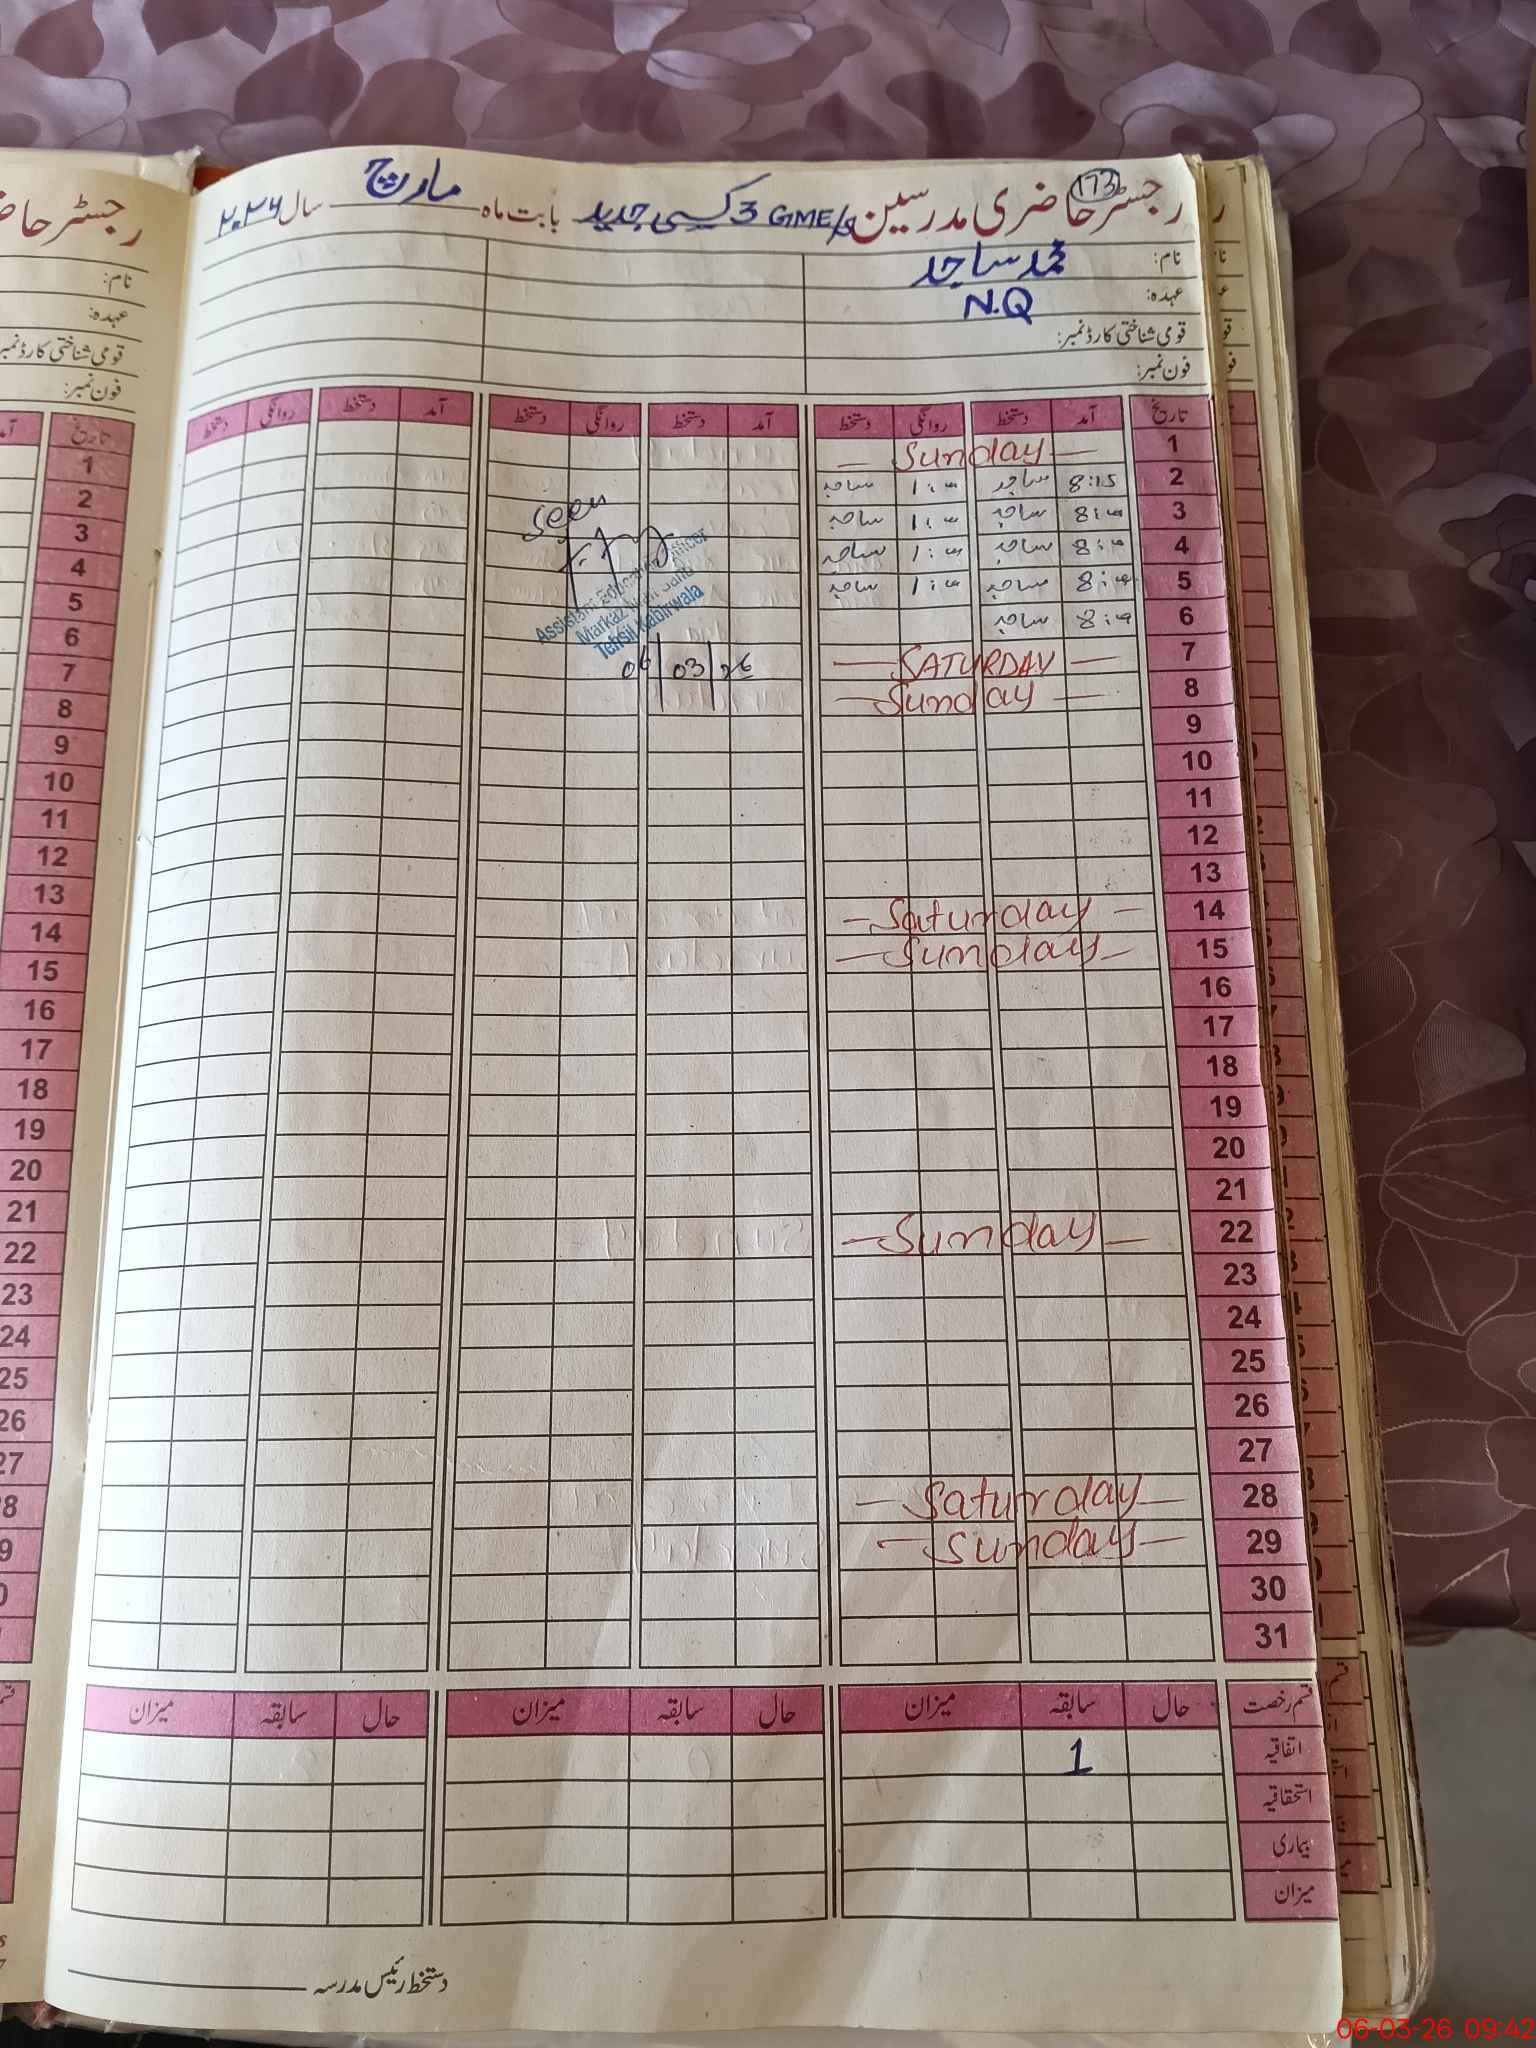 رجسٹر حاضری مدرسین GME/s 3 کسی جدید بابت ماہ مارچ سال ۲۰۲۶
173
نام: محمد ساجد
عہدہ: N.Q
قومی شناختی کارڈ نمبر:
فون نمبر:
تاریخ آمد دستخط روانگی دستخط آمد دستخط روانگی دستخط آمد دستخط روانگی دستخط
1 — Sunday —
2 8:15 ساجد ۱:۳۰ ساجد
3 ساجد ساجد
4 ساجد ساجد
5 ساجد ساجد
6 ساجد
7 — SATURDAY —
8 — Sunday —
Seen
Assistant Education Officer
Markaz
Tehsil Kabirwala
06/03/26
9
10
11
12
13
14 — Saturday —
15 — Sunday —
16
17
18
19
20
21
22 — Sunday —
23
24
25
26
27
28 — Saturday —
29 — Sunday —
30
31
قسم رخصت حال سابقہ میزان حال سابقہ میزان حال سابقہ میزان
اتفاقیہ 1
استحقاقیہ
بیماری
میزان
دستخط رئیس مدرسہ
رجسٹر حا
نام:
عہدہ:
قومی شناختی کارڈ نمبر
فون نمبر:
تاریخ
1
2
3
4
5
6
7
8
9
10
11
12
13
14
15
16
17
18
19
20
21
22
23
24
25
26
27
06-03-26 09:42